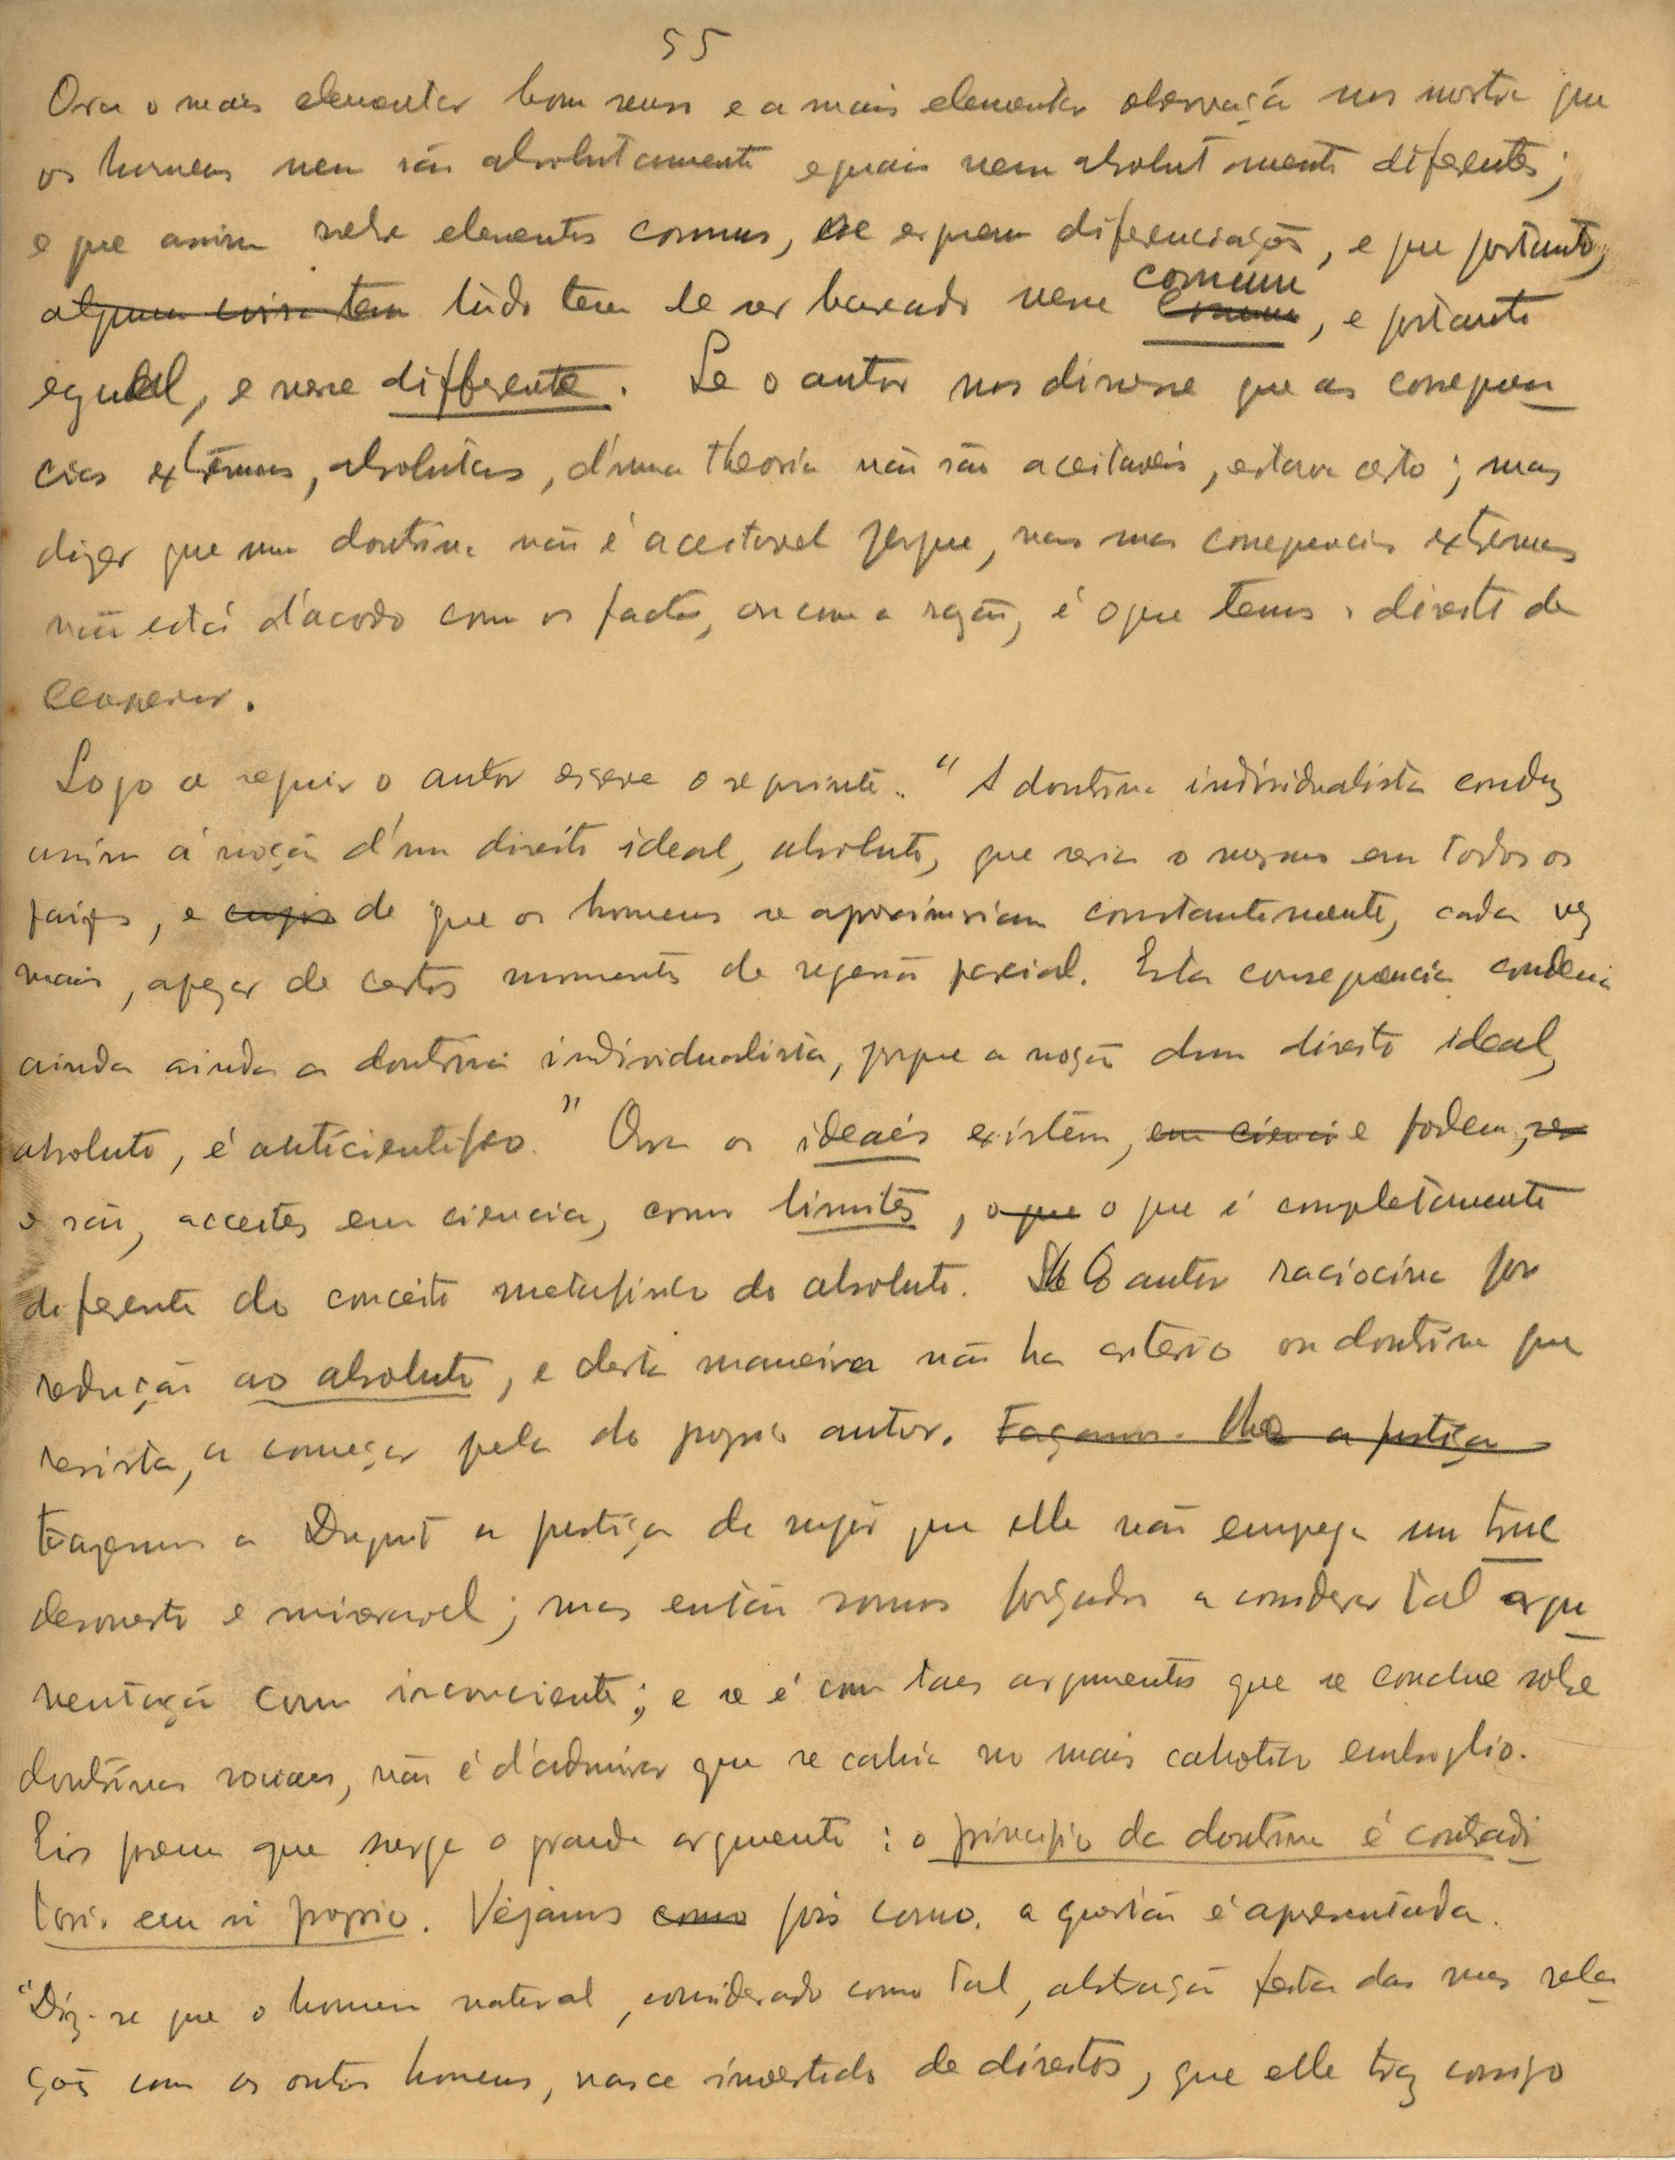 55
Ora o mais elementar bom senso e a mais elementar observação nos mostra que
os homens nem são absolutamente eguais nem absolutamente diferentes;
e que assim sobre elementos comuns, se erguem diferenciações, e que portanto,
alguma coisa tem tudo tem de ser baseado nesse comum comum, e portanto
egual, e nesse differente. Se o autor nos dissesse que as consequen
cias extremas, absolutas, d'uma theoria não são aceitaveis, estava certo; mas
dizer que uma doutrina não é aceitavel porque, nas suas consequencias extremas
não está d'acordo com os factos, ou com a razão, é o que temos o direito de
censurar.
Logo a seguir o autor escreve o seguinte: "A doutrina individualista conduz
assim á noção d'um direito ideal, absoluto, que seria o mesmo em todos os
paizes, e cujos de que os homens se aproximariam constantemente, cada vez
mais, apezar de certos momentos de regressão parcial. Esta consequencia condena
ainda ainda a doutrina individualista, porque a noção dum direito ideal,
absoluto, é anticientifico." Ora os ideaes existem, em ciencia e podem, ser
e são, acceites em ciencia, como limites, o que o que é completamente
diferente do conceito metafisico do absoluto. O autor raciocina por
redução ao absoluto, e desta maneira não ha criterio ou doutrina que
resista, a começar pela do proprio autor. Façamos-lhe a justiça
Façamos a Duguit a justiça de supôr que elle não emprega um truc
desonesto e miseravel; mas então somos forçados a considerar tal argu
mentação como inconsciente; e se é com taes argumentos que se conclue sobre
doutrinas sociaes, não é d'admirar que se cahia no mais cahotico embroglio.
Eis porem que surge o grande argumento: o principio da doutrina é contradi
torio em si proprio. Vejamos como pois como a questão é apresentada.
"Diz-se que o homem natural, considerado como tal, abstracção feita das suas rela
ções com os outros homens, nasce investido de direitos, que elle traz consigo